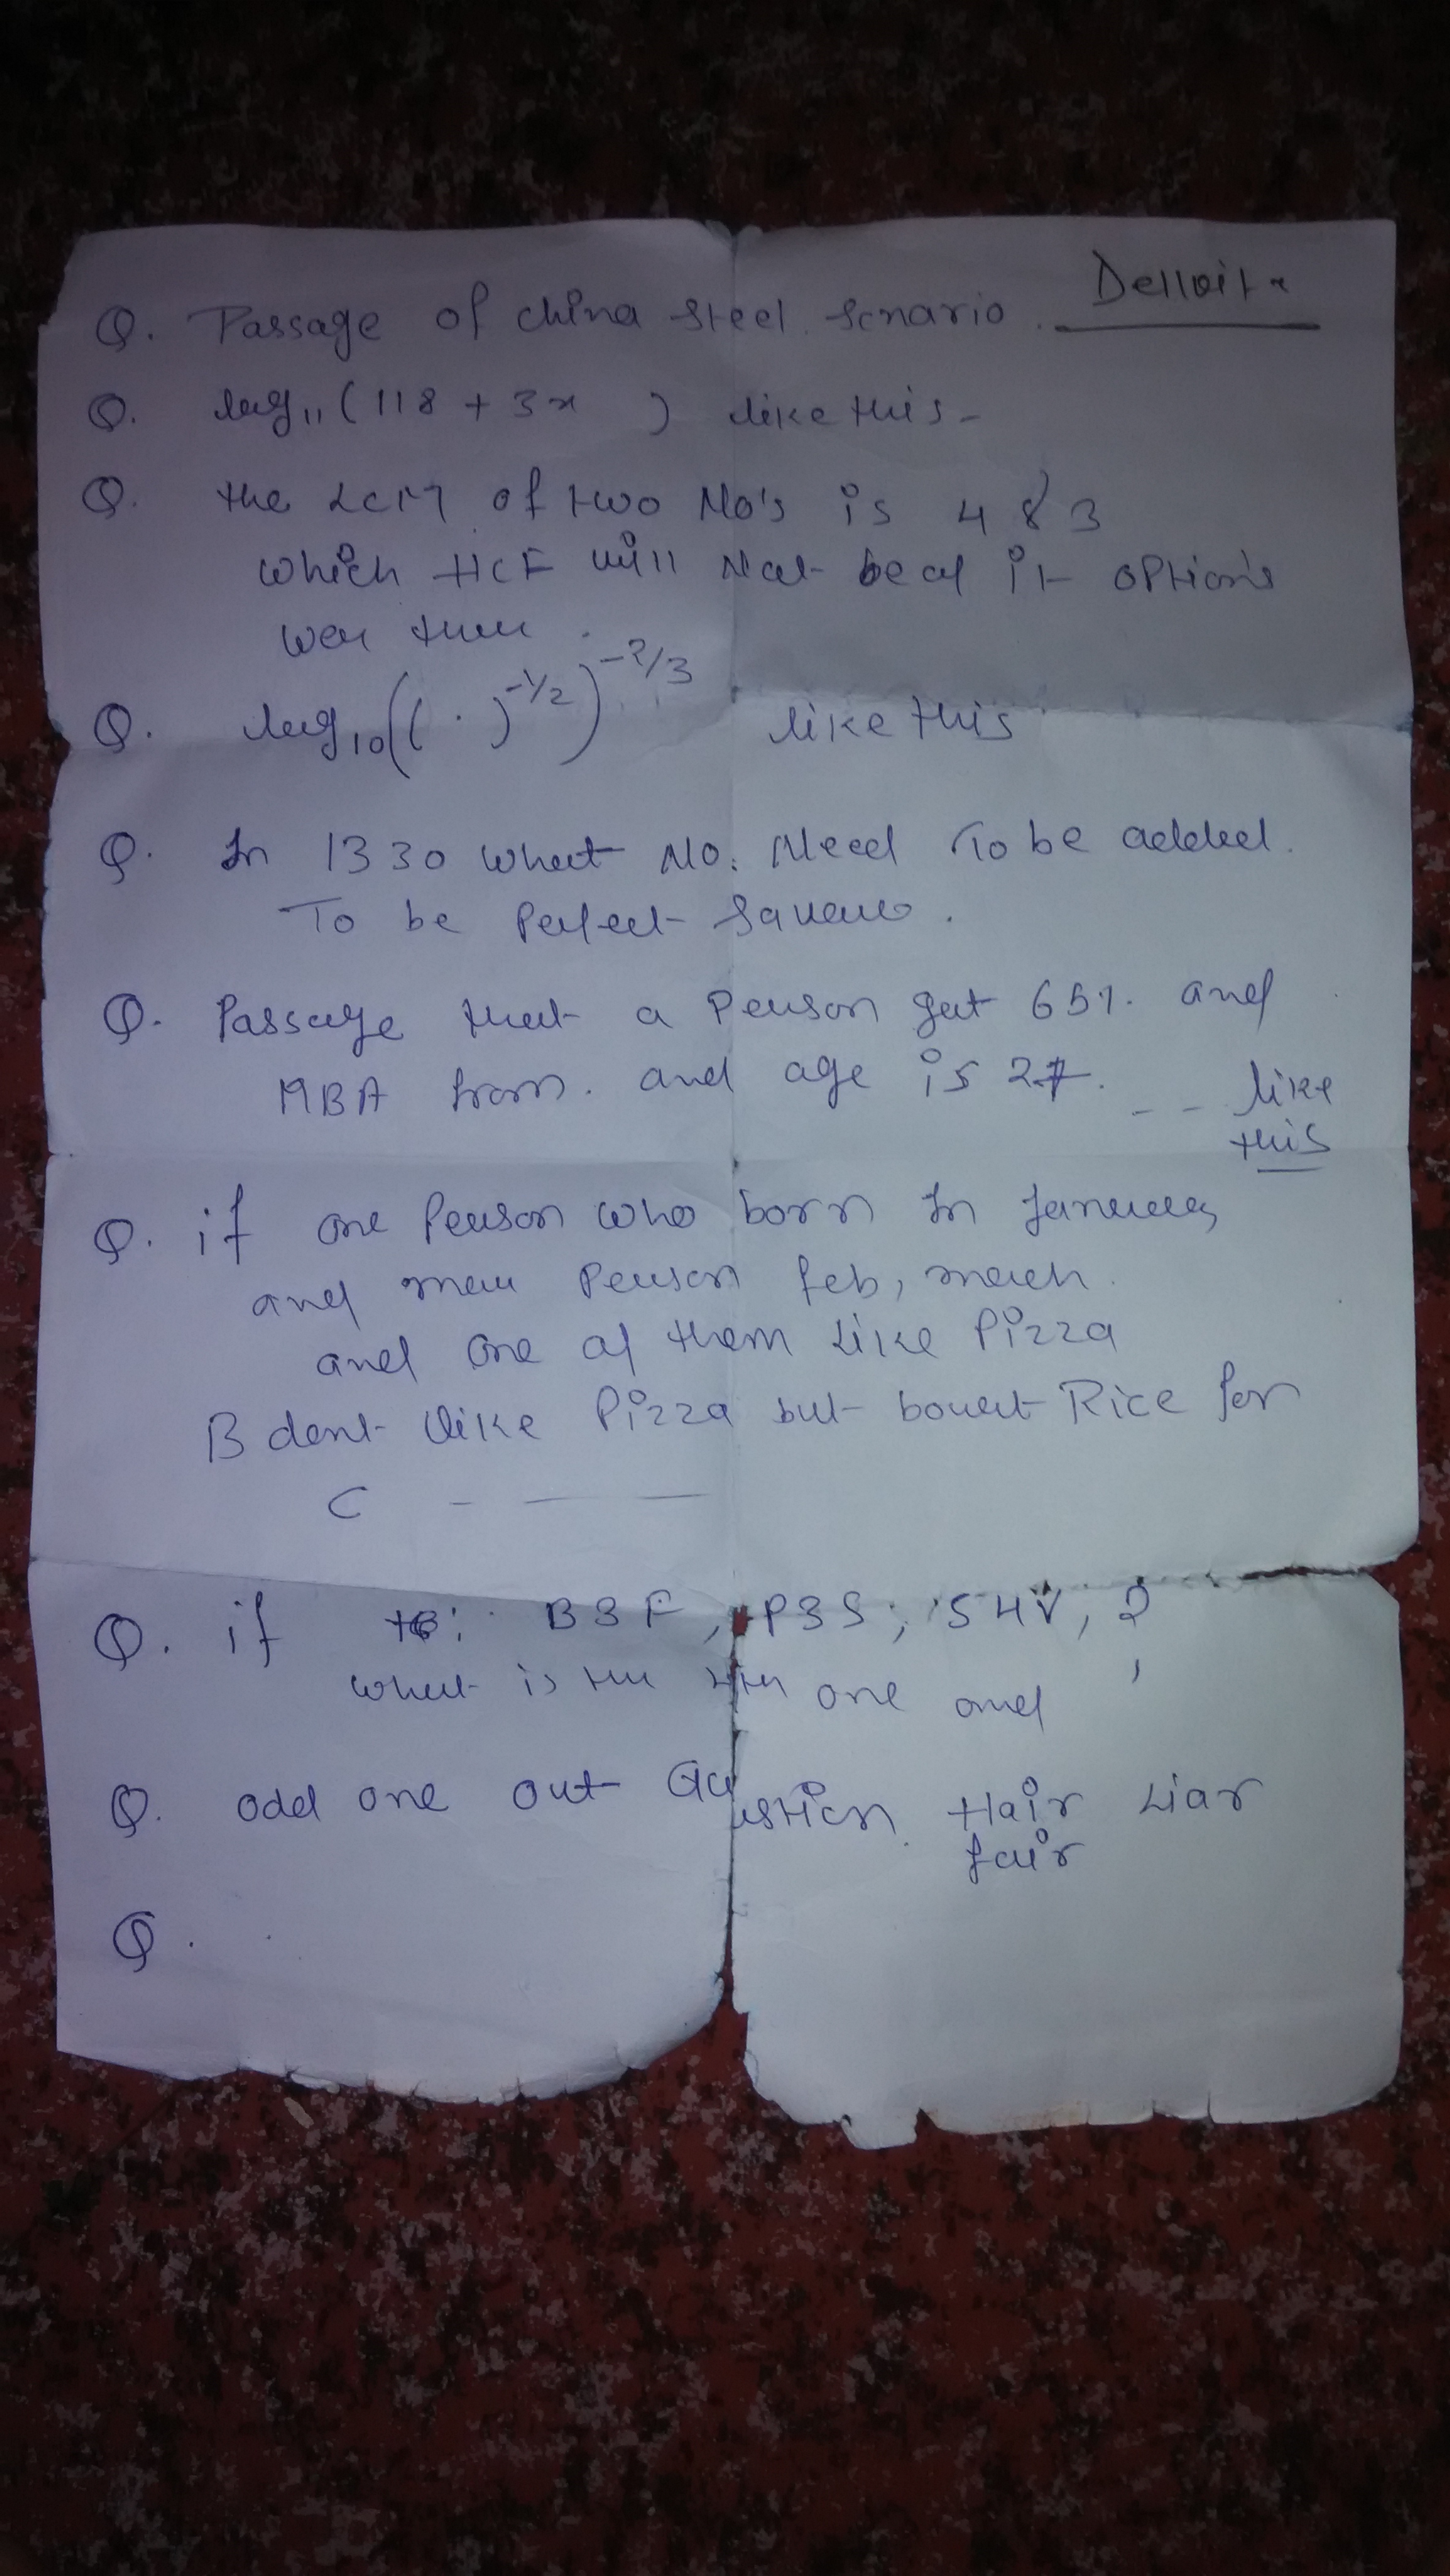 Delloite
Q. Passage of China Steel. Scnario.
Q. log₁₁(118 + 3x ) like this -
Q. the LCM of two No's is 483
which HCF will Not be of it option's
wer there.
Q. log₁₀(( . )^-1/2)^-2/3 like this
Q. In 1330 what No. Need To be added.
To be Perfect Square.
Q. Passage that a Person get 65%. and
MBA from. and age is 27. - - like
this
Q. if one Person who born In January
and Person feb, march.
and one of them like Pizza
B dont like Pizza but bouet Rice for
C - — —
Q. if B3F, P3S, S4V, ?
what is the 4th one and
Q. odd one out Question. Hair Liar
fair
Q.